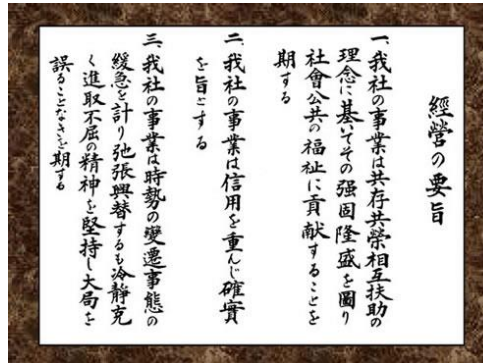 經營の要旨
一、我社の事業は共存共榮相互扶助の
理念に基いその强固隆盛を圖り
社會公共の福祉に貢献することを
期する
二、我社の事業は信用を重んじ確實
を旨とする
三、我社の事業は時勢の變遷事態の
緩急を計り弛張興替するも冷靜克
く進取不屈の精神を堅持し大局を
誤ることなきを期する